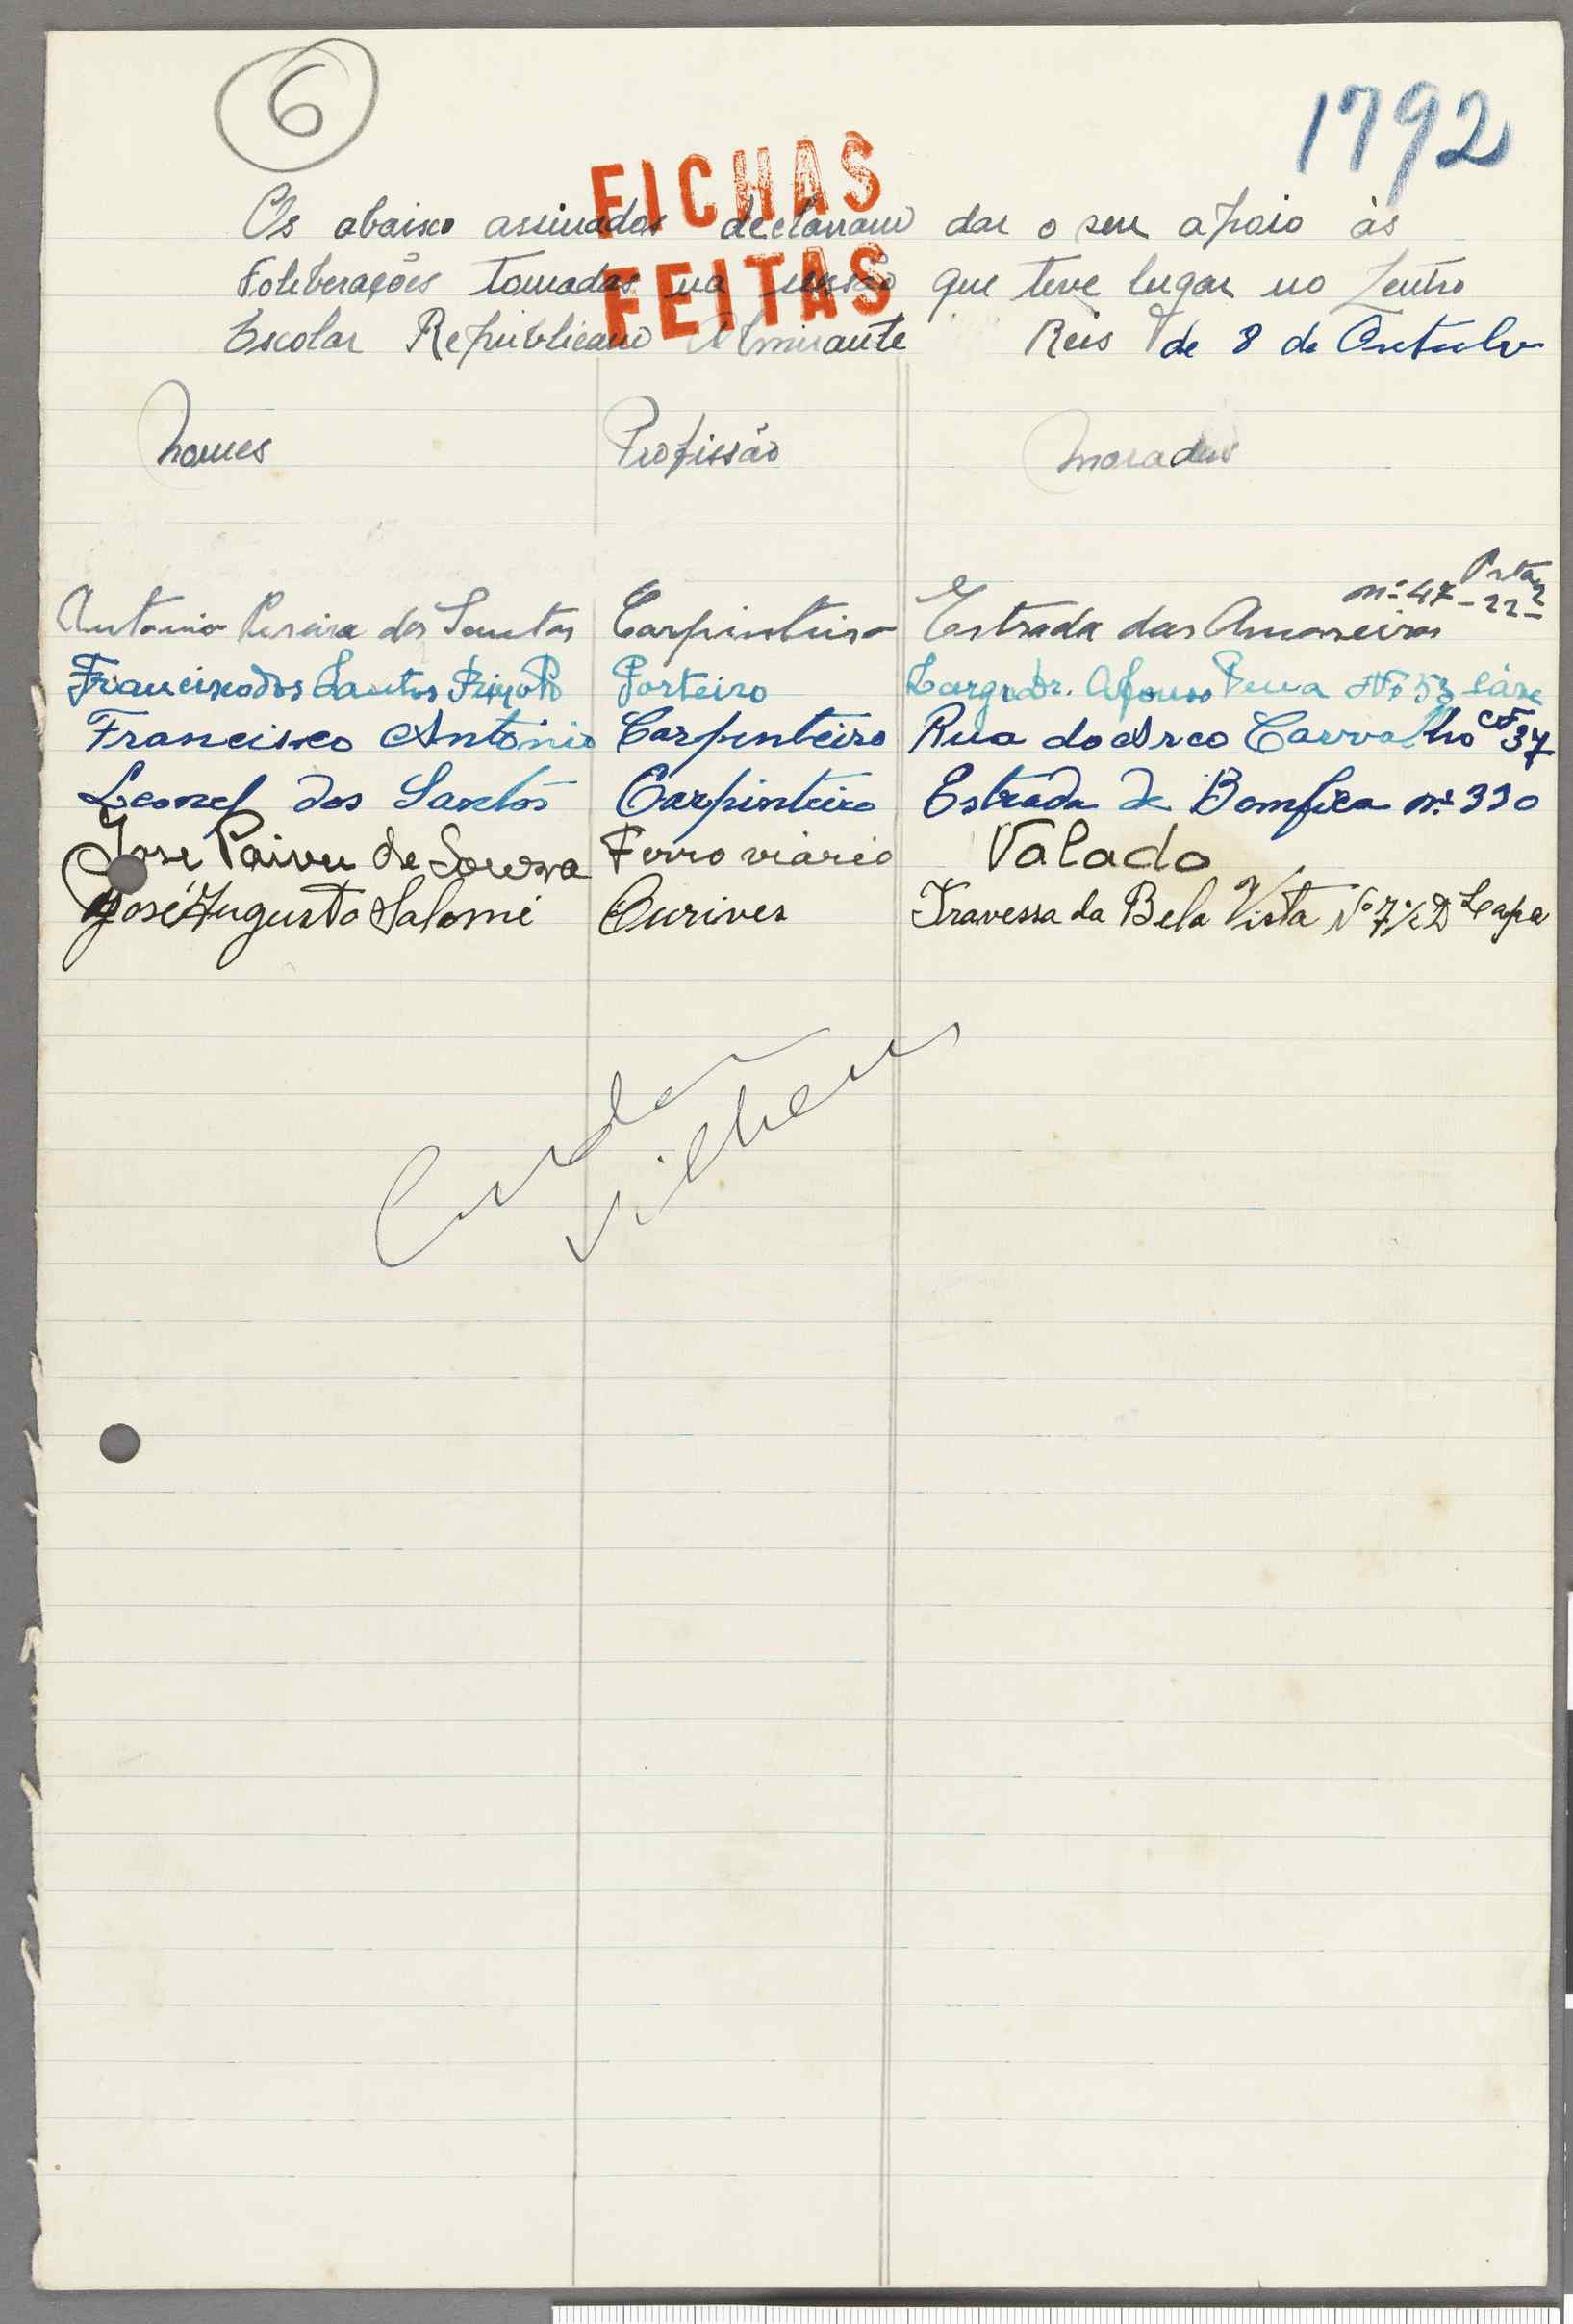 6
1792
FICHAS
FEITAS
Os abaixo assinados declaram dar o seu apoio às
deliberações tomadas na sessão que teve lugar no Centro
Escolar Republicano Almirante Reis de 8 de Outubro
Nomes Profissão Moradas
Antonio Pereira dos Santos Carpinteiro Estrada das Amoreiras nº 47
Francisco dos Santos Porteiro Largo Dr. Afonso Pena Nº 53 Cave
Francisco António Carpenteiro Rua do Arco Carvalho 37
Leonel dos Santos Carpinteiro Estrada de Bemfica nº 330
José Paiva de Sousa Ferroviário Valado
José Augusto Salomé Ourives Travessa da Bela Vista Nº 7 Lapa